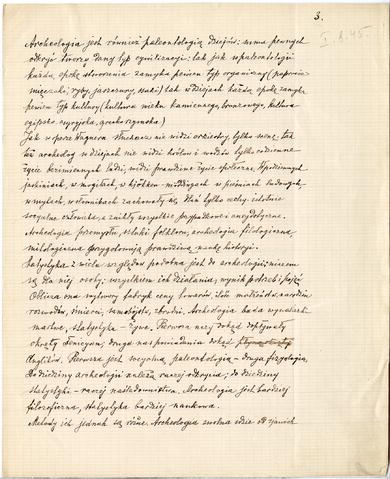 3.
I.8.45.
Archeologia jest również paleontologią dziejów; suma pewnych
odkryć tworzy dany typ cywilizacji: tak jak w paleontologii
każda epoka stworzenia zamyka pewien typ organizmy (paprocie
mięczaki, ryby, jaszczury, ssaki) tak w dziejach każdą epokę zamyka
pewien typ kultury (kultura wieku kamiennego, bronzowego, kultura
egipsko-assyryjska, grecko-rzymska)
Jak w operze Wagnera słuchacz nie widzi orkiestry, tylko scenę - tak
też archeolog w dziejach nie widzi królów i wodzów tylko codzienne
życie bezimiennych ludzi, widzi prawdziwe życie społeczne. W podziemnych
jaskiniach, w mogiłach, w kjökken-möddingach w pieśniach ludowych,
w mytach, w słownikach zachowały się dlań tylko cechy istotnie
socyalne człowieka, a znikły wszystkie przypadkowe i anegdotyczne.
Archeologia przemysłu, sztuki, folklor, archeologia filologiczna,
mitologiczna przygotowują prawdziwą naukę historji.
Statystyka z wielu względów podobna jest do archeologii; niczem
są dla niej osoby; wszystkiem ich działania; wynik potrzeb i pojęć
Oblicza ona wyroby fabryk ceny towarów, ilość małżeństw, narodzin
rozwodów, śmierci, samobójstw, zbrodni. Archeologia bada wynalazki
martwe, statystyka - żywe. Pierwsza uczy dokąd dopływały
okręty Fenicyan; druga nas powiadamia dokąd
Anglików. Pierwsza jest socyalną paleontologią - druga fizyologią.
Do dziedziny archeologii należą raczej odkrycia; do dziedziny
statystyki - raczej naśladownictwa. Archeologia jest bardziej
filozoficzna, statystyka bardziej naukowa.
Metody ich jednak są różne. Archeologia zwolna idzie od